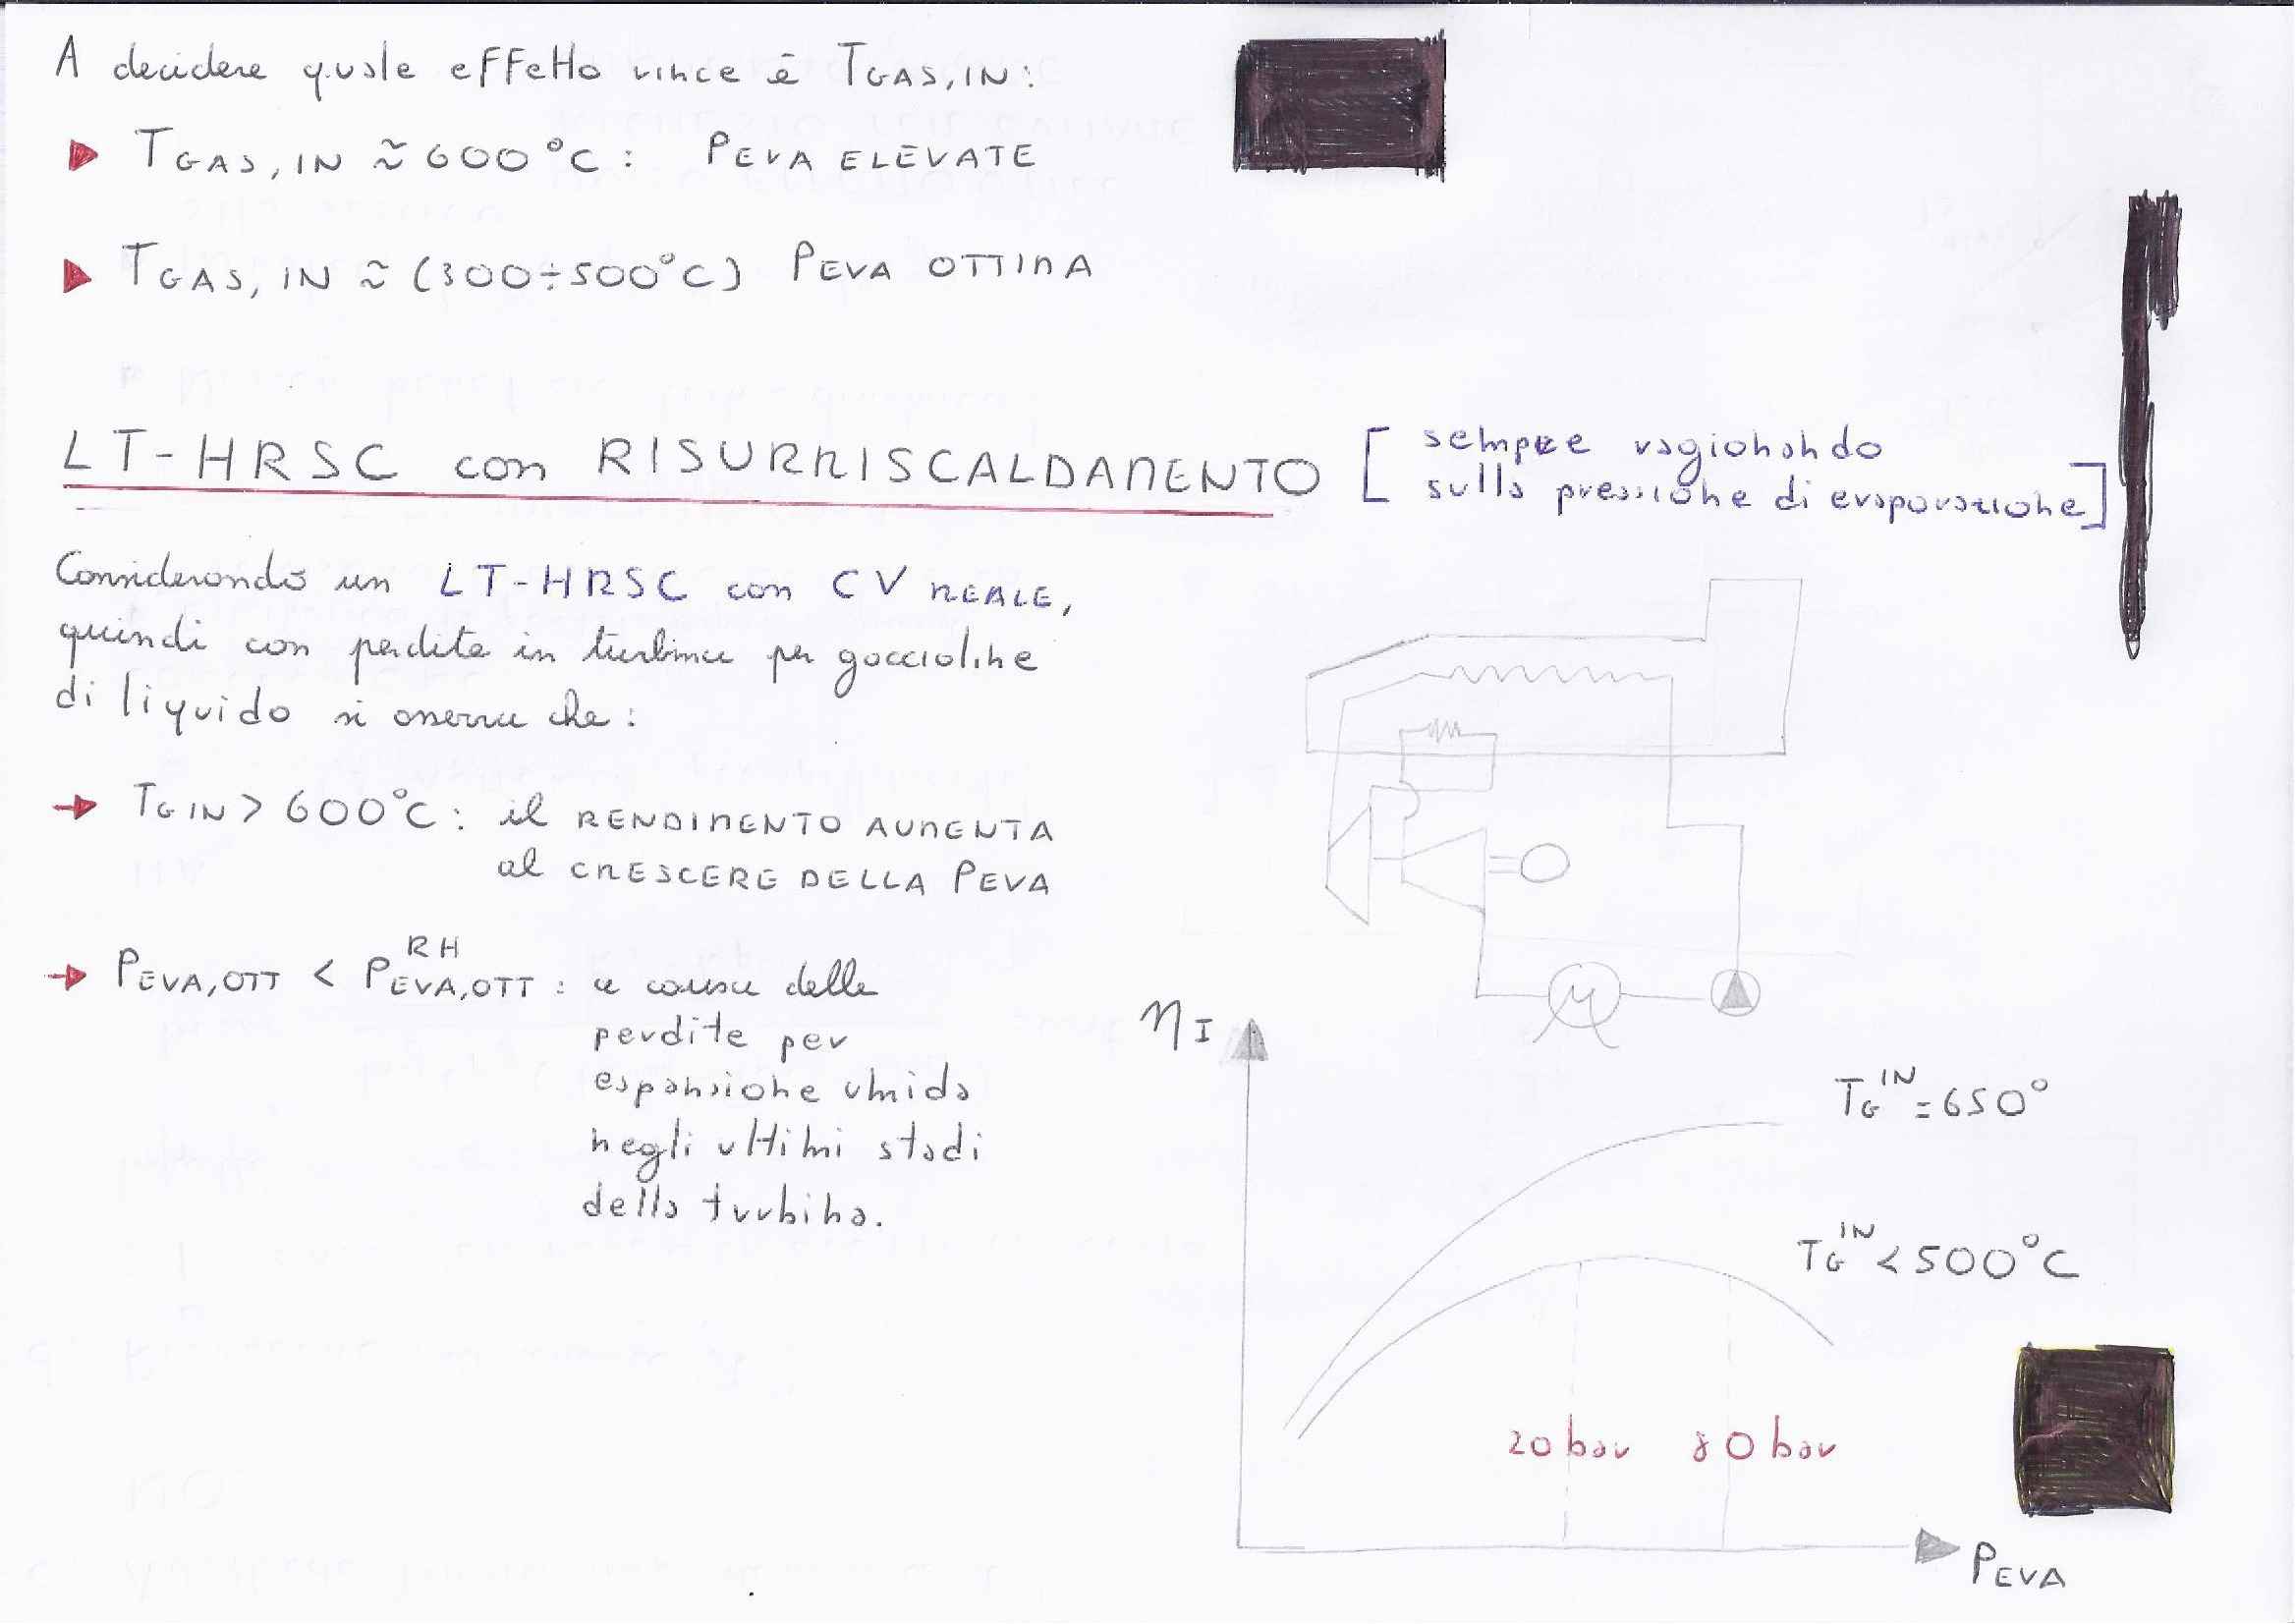 A decidere quale effetto vince è TGAS,IN:
▶ TGAS,IN ≈ 600°C: PEVA ELEVATE
▶ TGAS,IN ≈ (300÷500°C) PEVA OTTIMA
LT-HRSC con RISURRISCALDAMENTO [sempre ragionando
sulla pressione di evaporazione]
Considerando un LT-HRSC con CV REALE,
quindi con perdite in turbina per goccioline
di liquido si osserva che:
→ TG IN > 600°C: il RENDIMENTO AUMENTA
al CRESCERE DELLA PEVA
→ PEVA,OTT < P^RH EVA,OTT: a causa delle
perdite per
espansione umida
negli ultimi stadi
della turbina.
ηI
TG^IN = 650°
TG^IN < 500°C
20 bar 80 bar
PEVA